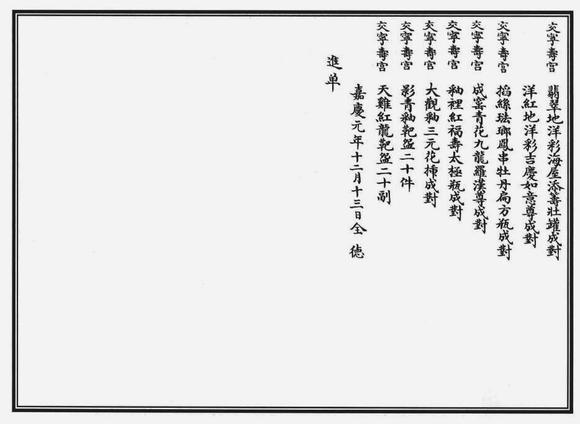 交寧壽宮 翡翠地洋彩海屋添籌壯罐成對
洋紅地洋彩吉慶如意尊成對
交寧壽宮 掐絲琺瑯鳳串牡丹扁方瓶成對
交寧壽宮 成窑青花九龍羅漢尊成對
交寧壽宮 釉裡紅福壽太極瓶成對
交寧壽宮 大觀釉三元花揷成對
交寧壽宮 影青釉靶盌二十件
交寧壽宮 天雞紅龍靶盌二十副
嘉慶元年十二月十三日全德
進单